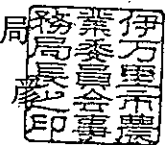 伊万里市農
業委員会事
務局長之印
局
彦